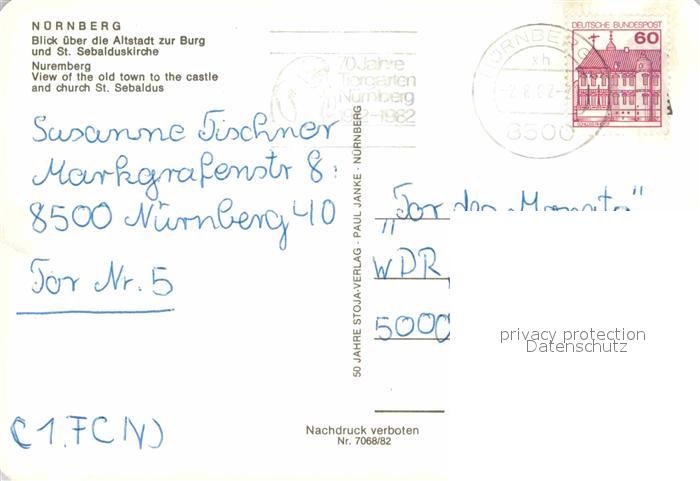 NÜRNBERG
Blick über die Altstadt zur Burg
und St. Sebalduskirche
Nuremberg
View of the old town to the castle
and church St. Sebaldus
Susanne Tischner
Markgrafenstr 8
8500 Nürnberg 40
Tor Nr. 5
(1. FCN)
50 JAHRE STOJA-VERLAG - PAUL JANKE - NÜRNBERG
70 Jahre
Tiergarten
Nürnberg
1912-1982
NÜRNBERG
8500
DEUTSCHE BUNDESPOST
60
"Tor des Monats"
WDR
5000
privacy protection
Datenschutz
Nachdruck verboten
Nr. 7068/82